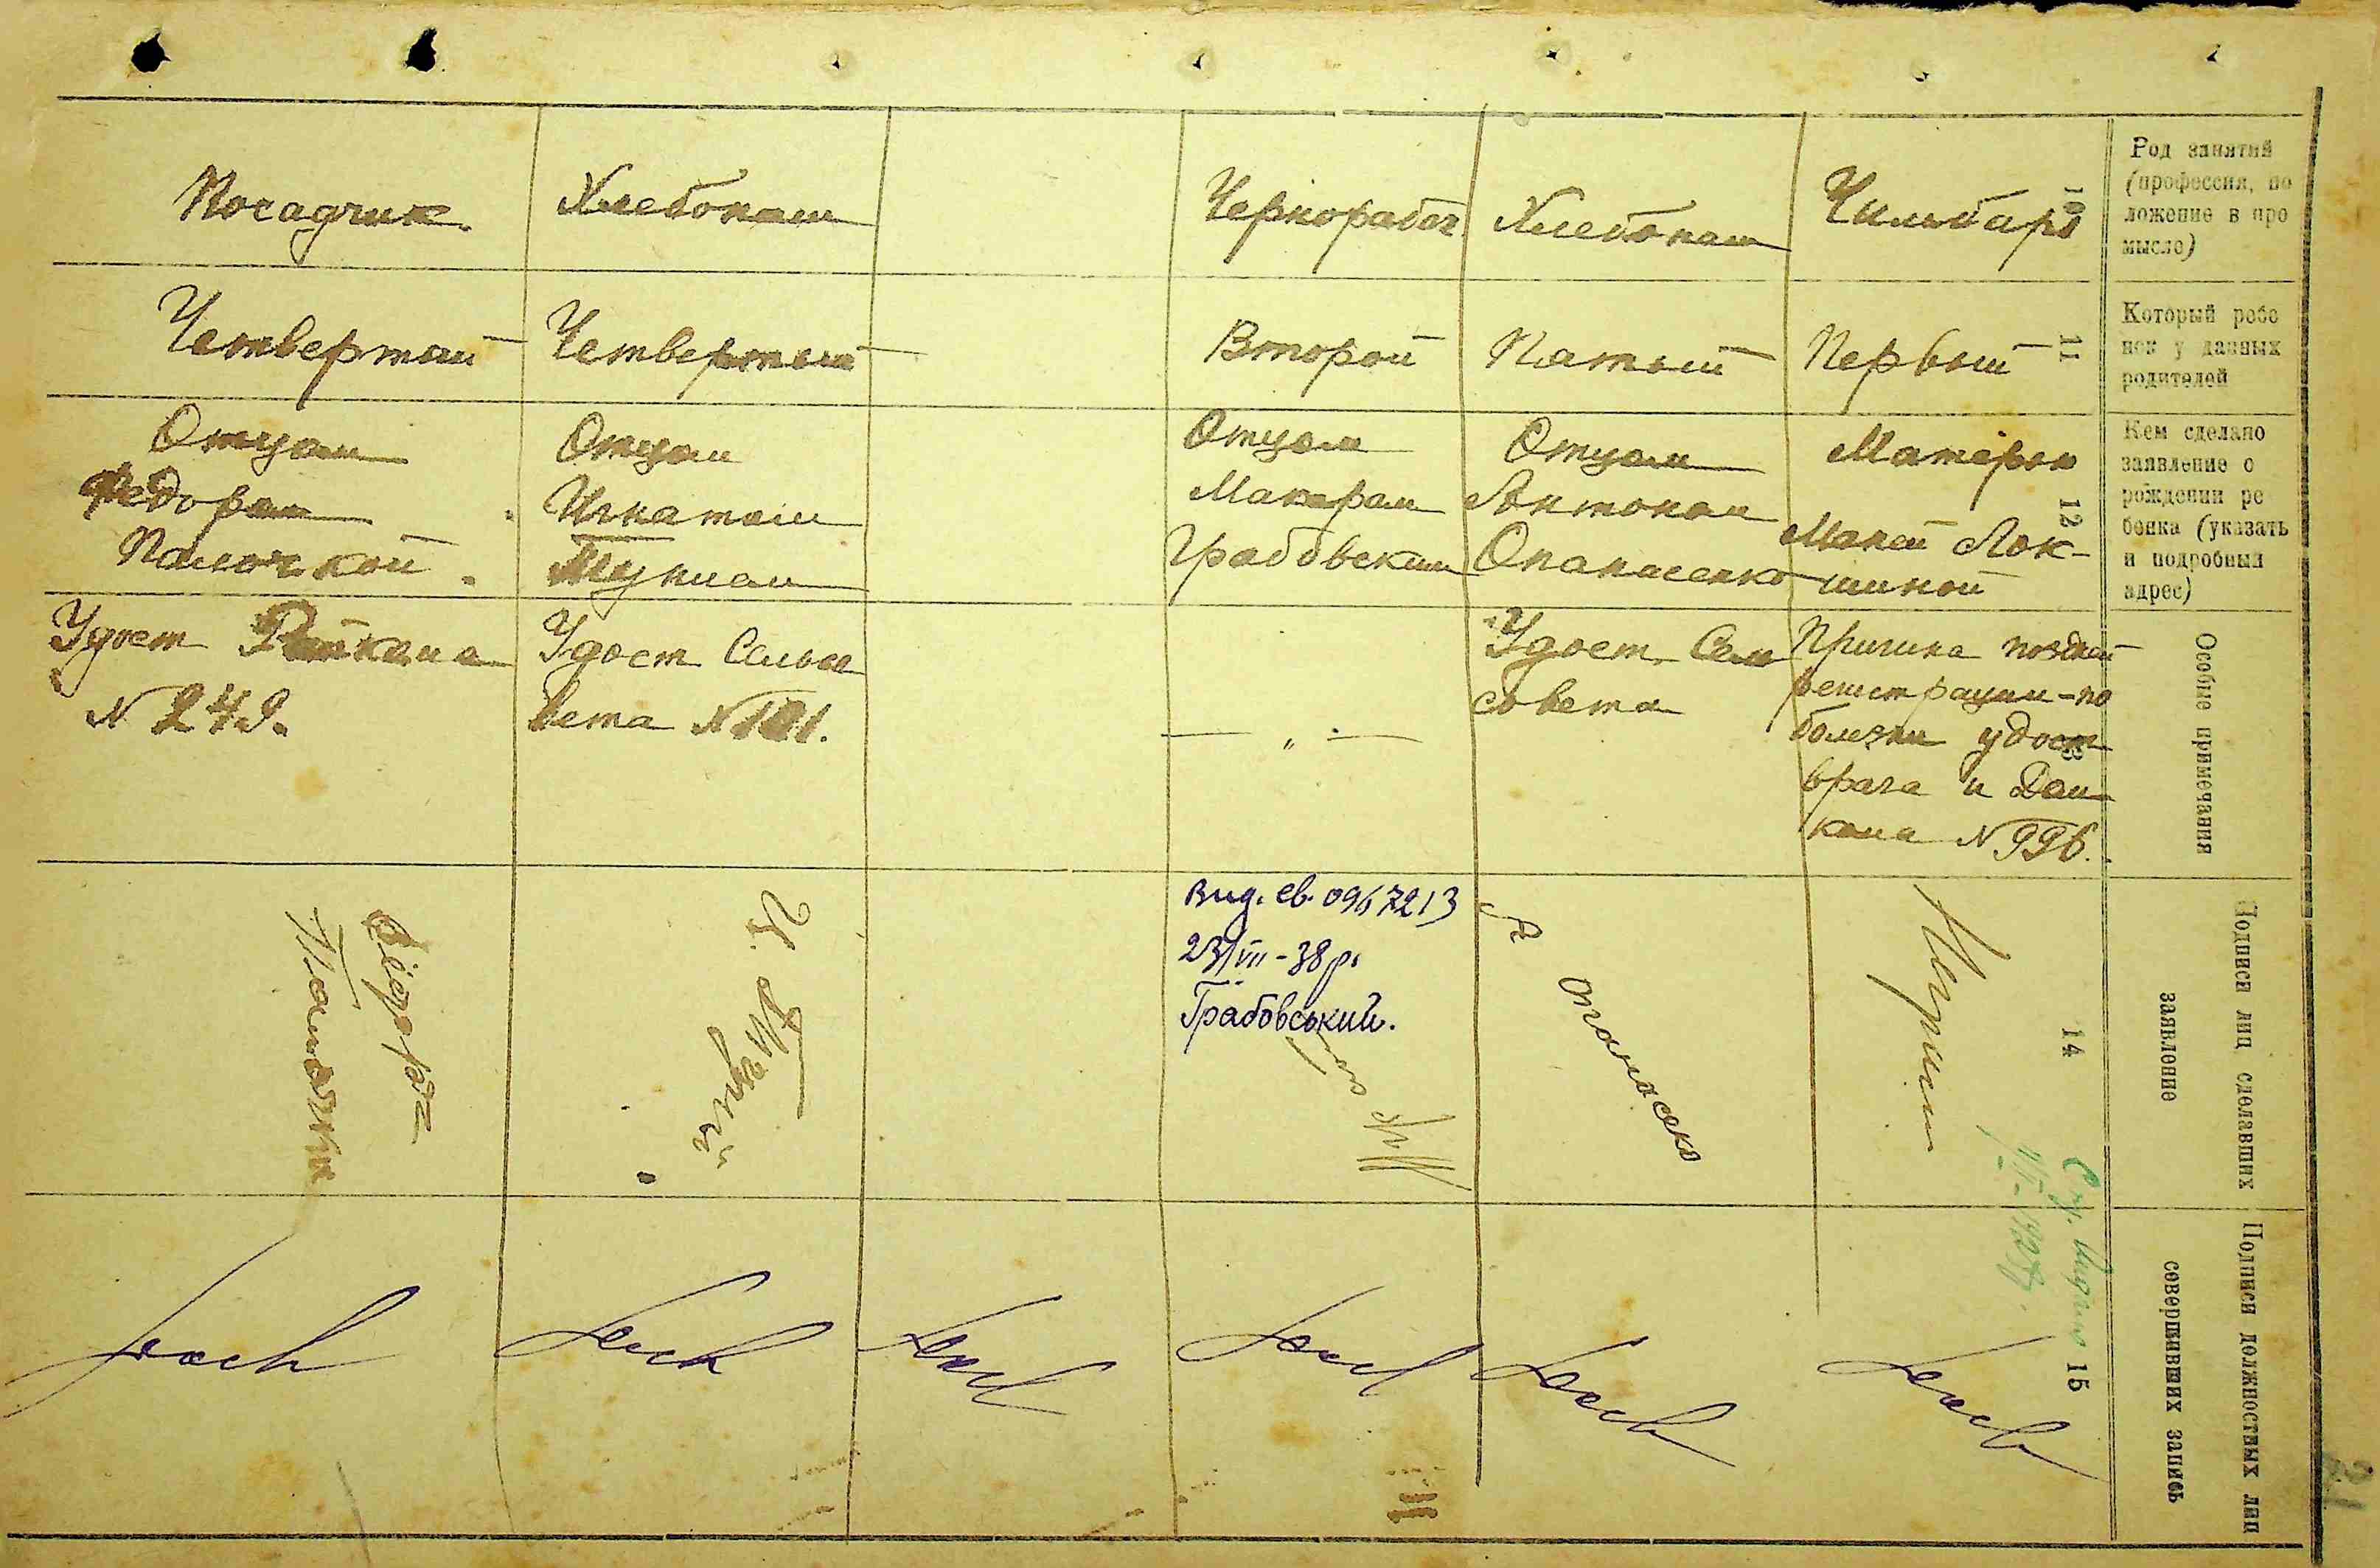 Посадчик.
Хлебопаш
Чернорабоч
Хлебопаш
10
Род занятий
(профессия, по
ложение в про
мысле)
Четвертый
Четвертый
Второй
Пятый
Первый
11
Который ребе
нок у данных
родителей
Отцом
Федором
Отцом
Игнатом
Отцом
Макаром
Грабовским
Отцом
Антоном
Опанасенко
Матерью
Маней Лок-
шиной
12
Кем сделано
заявление о
рождении ре
бенка (указать
и подробный
адрес)
Удост Райкома
N 249.
Удост Сельсо
вета N 101.
— „ —
Удост. Сель
совета
Причина поздней
регистрации - по
болезни удост
врача и Дом
кома N 996.
Особые примечания
Вид. св. 0967213
23/VII - 38 р.
Грабовський.
А Опанасенко
14
Подписи лиц сделавших
заявление
15
Подписи должностных лиц
совершивших запись